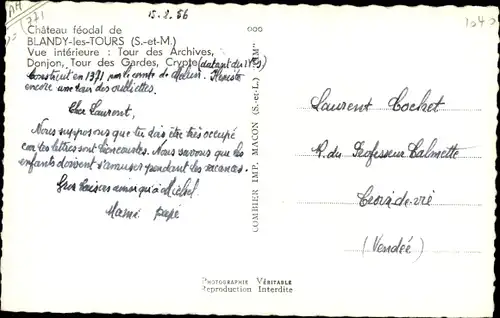 15.2.56
Château féodal de
BLANDY-les-TOURS (S.-et-M.)
Vue intérieure : Tour des Archives,
Donjon, Tour des Gardes, Crypte (datant du
Construit en 1371 par le comte de Melun. Il existe
encore une des oubliettes.
Cher Laurent,
Nous supposons que tu dois être très occupé
car tes lettres sont bien courtes. Nous savons que les
enfants doivent s'amuser pendant les vacances.
Gros baisers ainsi qu'à Michel.
Mamie papé
COMBIER IMP. MACON (S.-et-L.) "CIM"
Laurent Cochet
R. du Professeur Calmette
Croix-de-vie
(Vendée)
PHOTOGRAPHIE VÉRITABLE
Reproduction Interdite